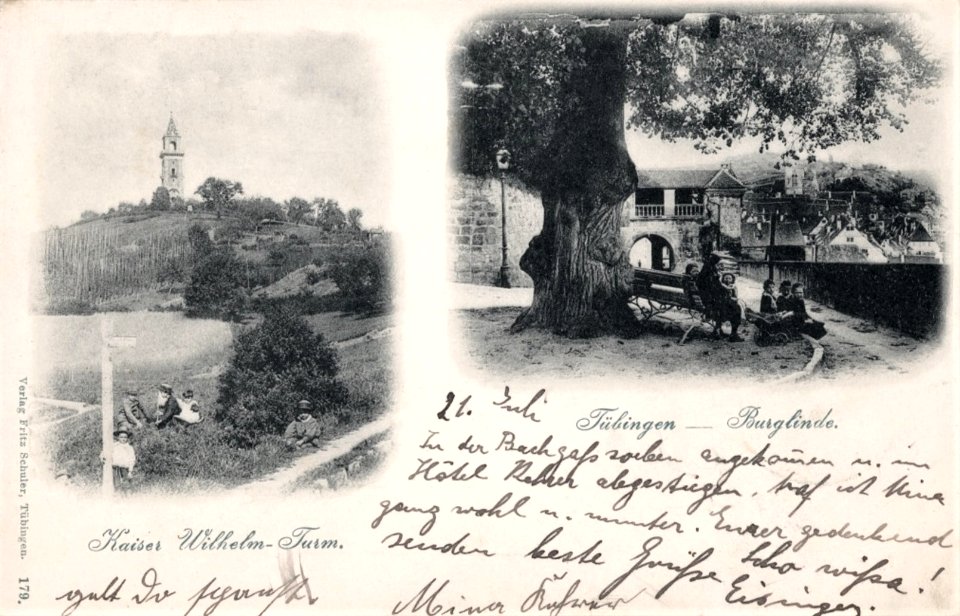 Verlag Fritz Schuler, Tübingen. 179.
Kaiser Wilhelm-Turm.
Tübingen — Burglinde.
21. Juli
In der Bachgass soeben angekommen u. im
Hôtel abgestiegen, traf ich Mina
ganz wohl u. munter. Eurer gedenkend
senden beste Grüsse
Eisinger
gelt Do schaust
Mina